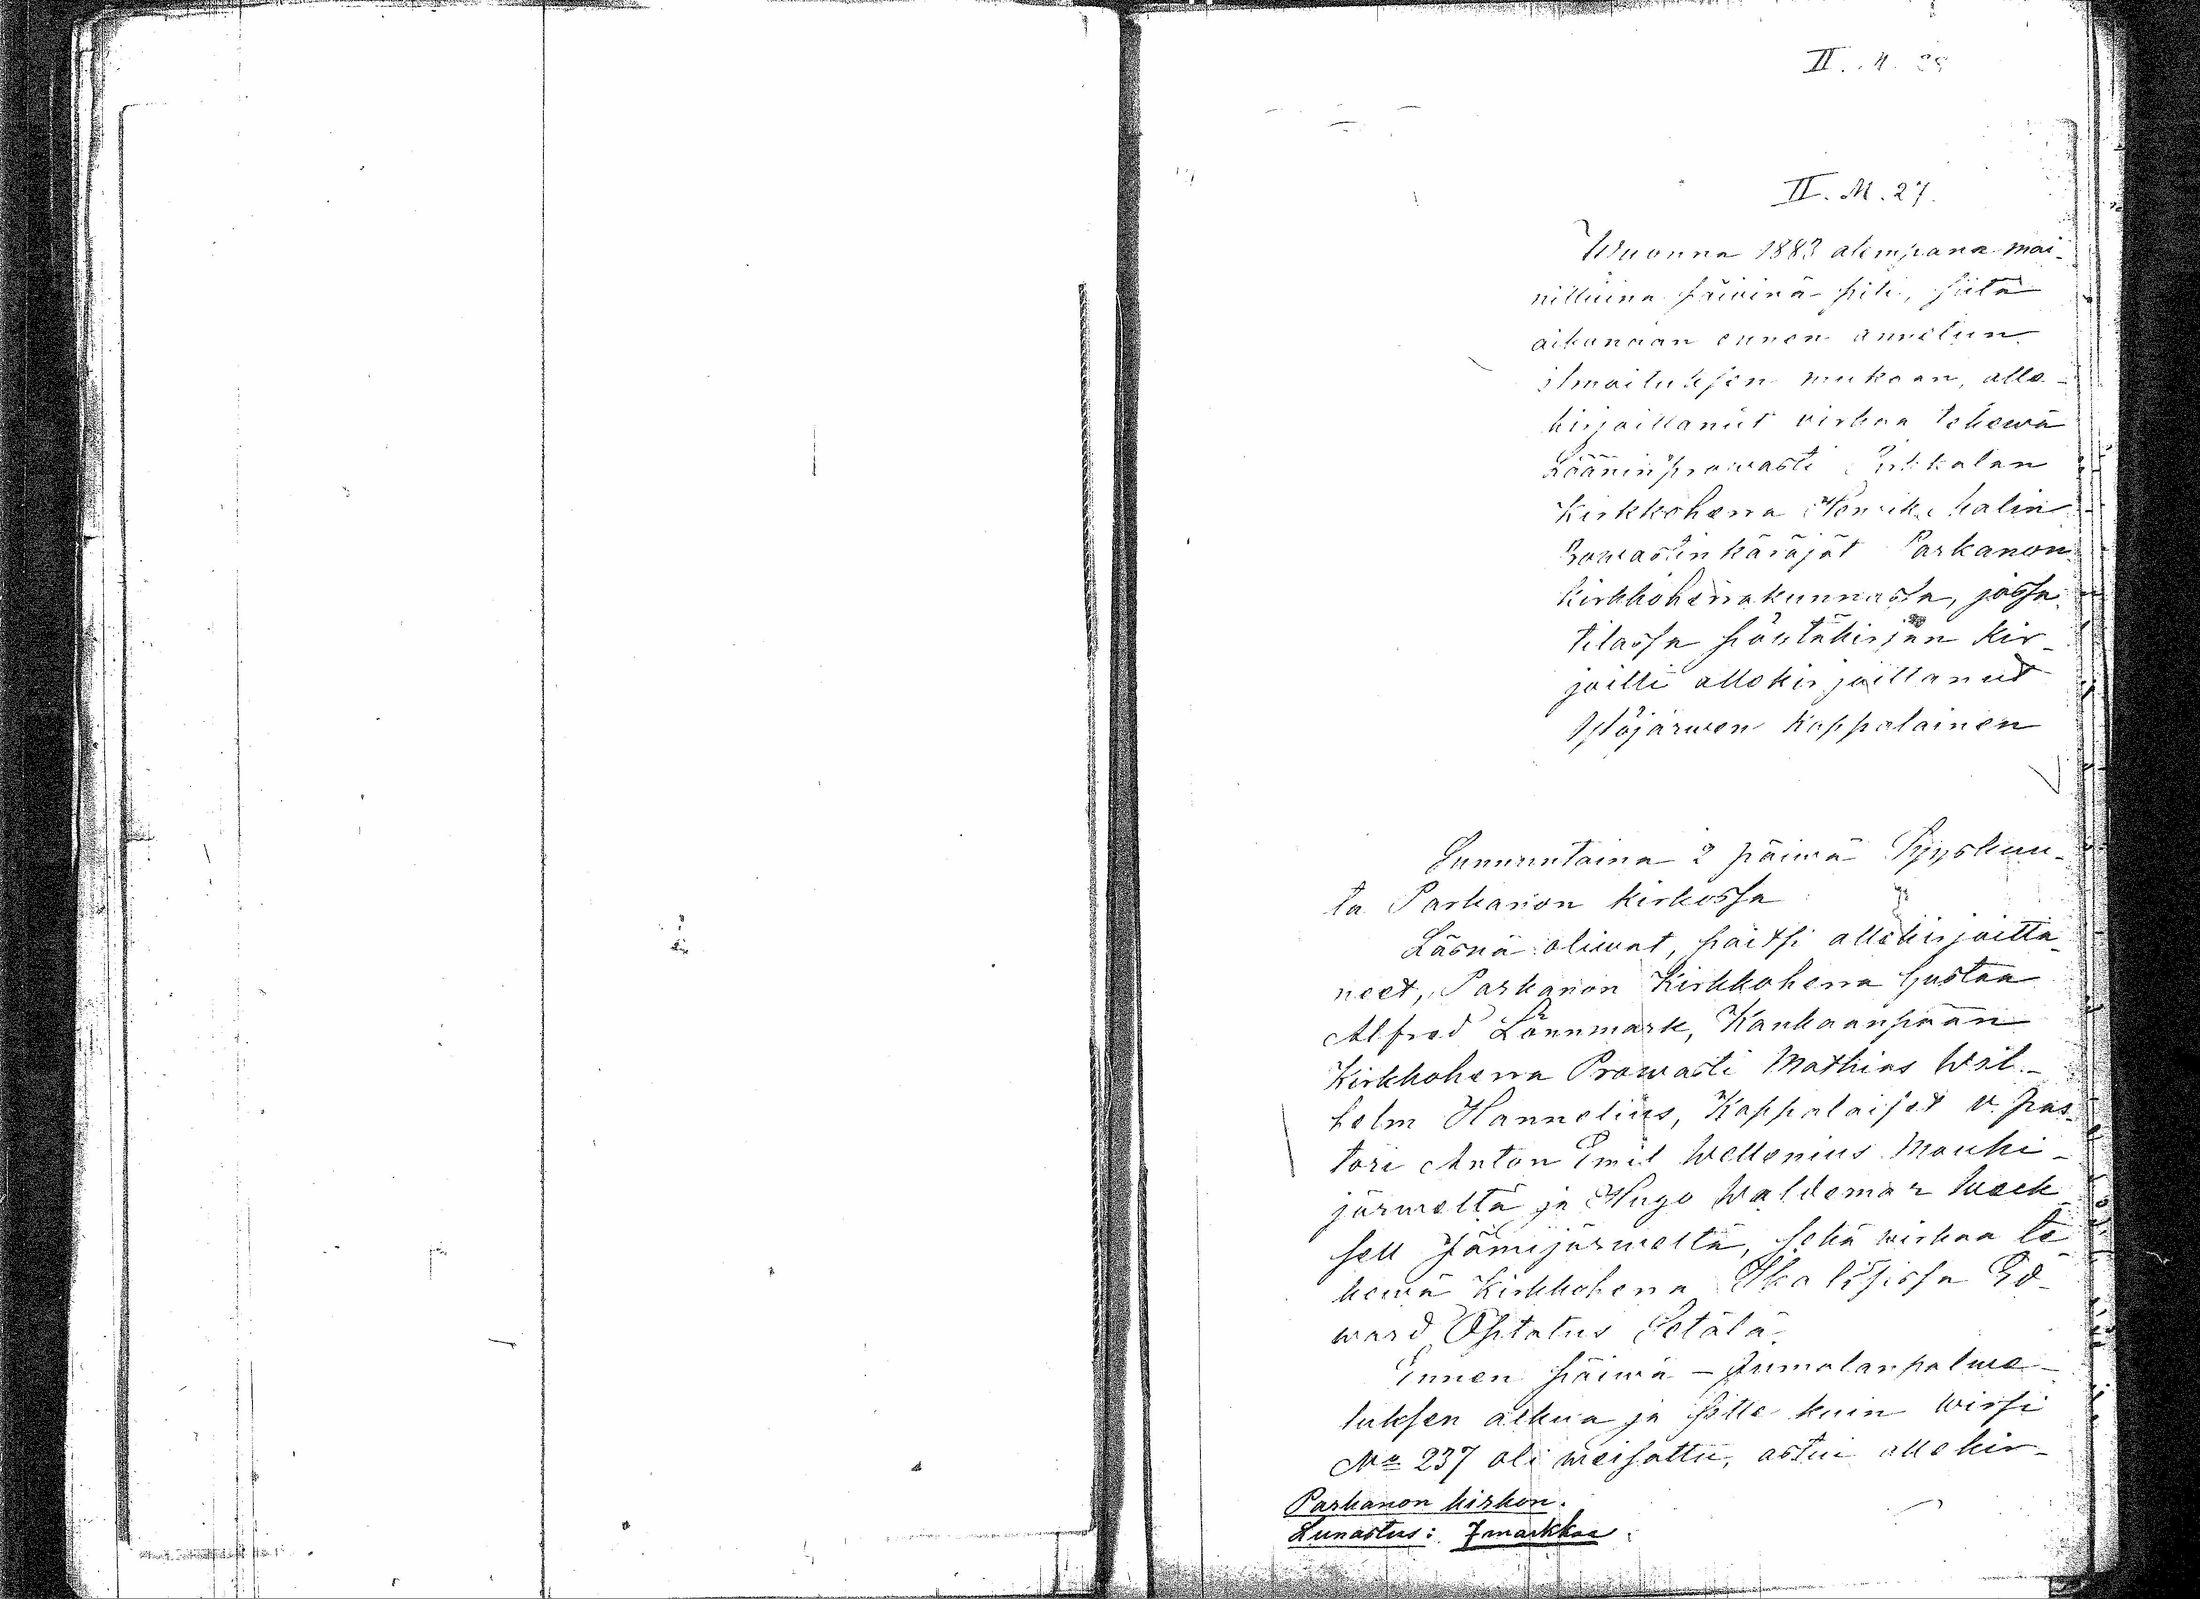 II.
II. M. 27.
Wuonna 1883 alempana mai-
nittuina päivinä piti, siitä
aikanaan ennen annetun
ilmoituksen mukaan, alle-
kirjoittanut virkaa tekewä
Lääninprowasti Pirkkalan
Kirkkoherra Henrik
Rowastinkäräjät Parkanon
Kirkkoherrakunnassa, jossa
tilassa pöytäkirjan kir-
joitti allekirjoittanut
Ylöjärwen Kappalainen
Sunnuntaina 2 päiwä Syyskuu-
ta Parkanon kirkossa
Läsnä oliwat, paitsi allekirjoitta-
neet, Parkanon Kirkkoherra Gustaa
Alfred Lönnmark, Kankaanpään
Kirkkoherra Prowasti Mathias Wil-
helm Hannelius, Kappalaiset v. pas-
tori Anton Emil Wellenius Mouhi-
järweltä ja Hugo Waldemar Weck-
sell Jämijärweltä, sekä wirkaa te-
kewä Kirkkoherra Ikalisissa Ed-
ward Optatus Setälä.
Ennen päiwä-Jumalanpalwe-
luksen alkua ja sitte kuin wirsi
No 237 oli weisattu, astui allekir-
Parkanon kirkon.
Lunastus: 7 markkaa